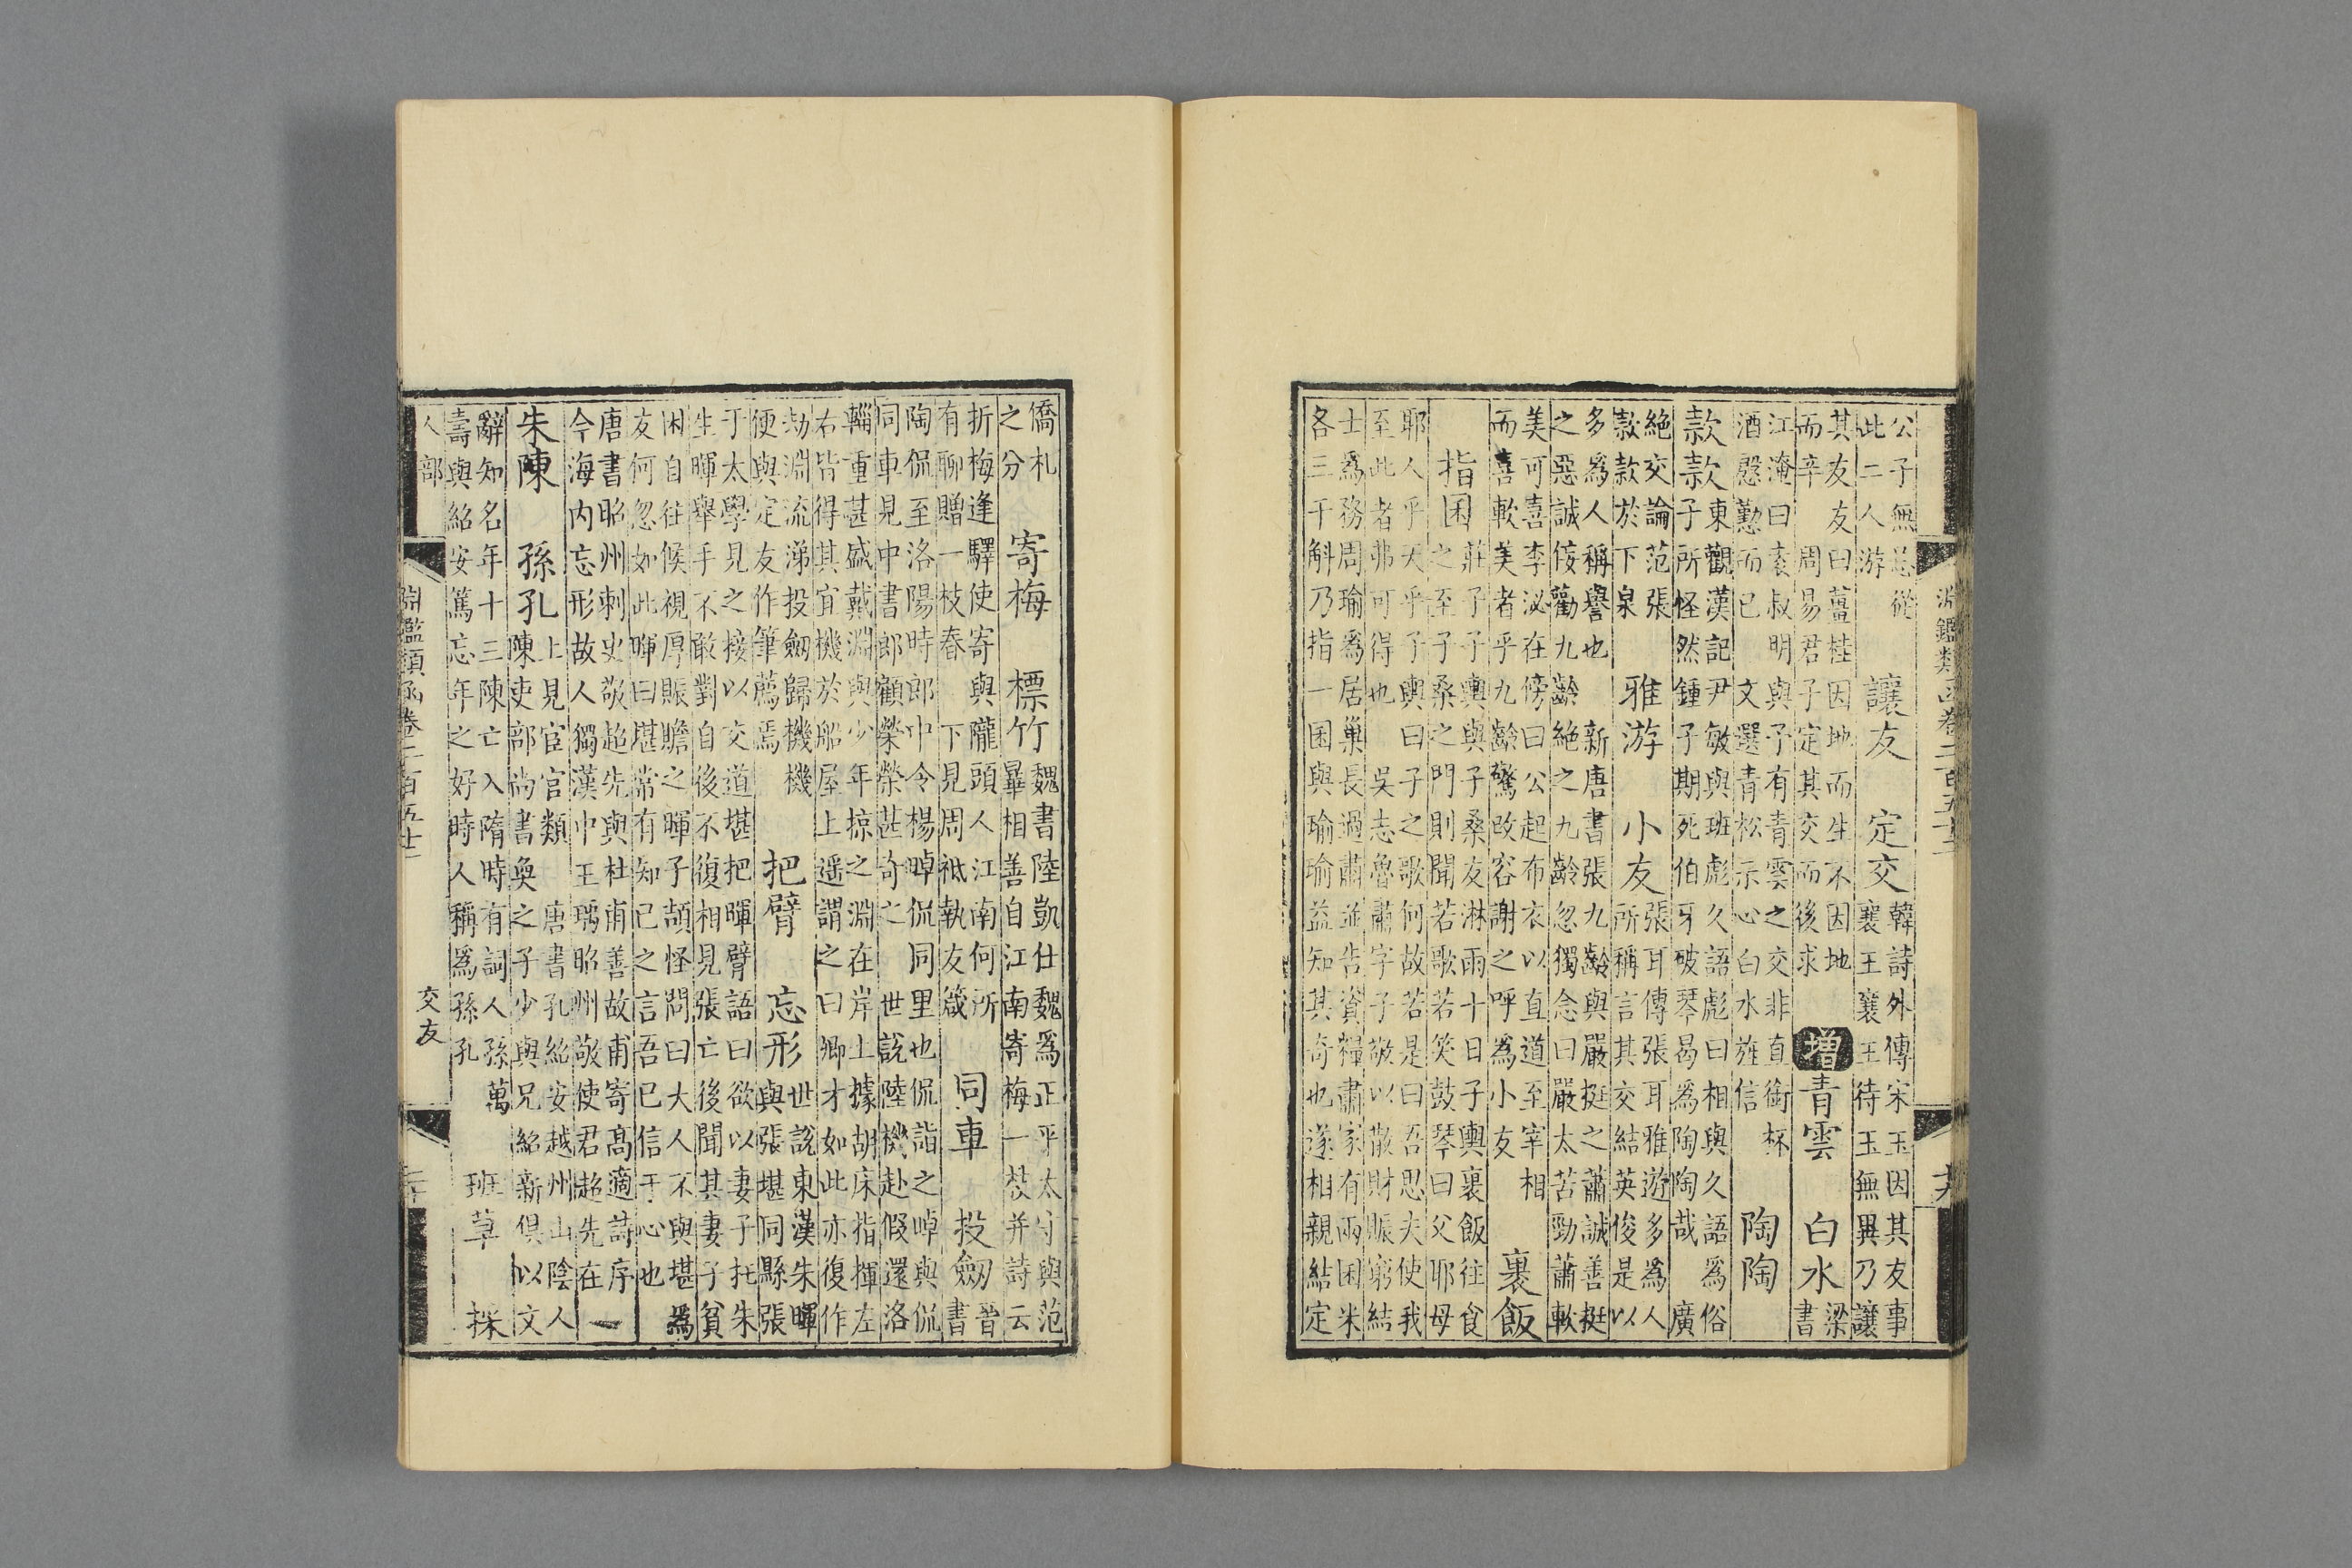 淵鑑類函卷二百五十
公子無忌從
此二人游
讓友　定交
韓詩外傳宋玉因其友事
襄王襄王待玉無異乃讓
其友友曰薑桂因地而生不因地
而辛　周易君子定其交而後求
增青雲　白水
梁
書
江淹曰袁叔明與予有青雲之交非直銜杯
酒慇懃而已　文選青松示心白水旌信
陶陶
款款
東觀漢記尹敏與班彪久語彪曰相與久語爲俗
子所怪然鍾子期死伯牙破琴曷爲陶陶哉　廣
絕交論范張
款款於下泉
雅游　小友
張耳傳張耳雅遊多爲人
所稱言其交結英俊是以
多爲人稱譽也　新唐書張九齡與嚴挺之蕭誠善挺
之惡誠侫勸九齡絕之九齡忽獨念曰嚴太苦勁蕭軟
美可喜李泌在傍曰公起布衣以直道至宰相
而喜軟美者乎九齡驚改容謝之呼爲小友
裹飯
指囷
莊子子輿與子桑友淋雨十日子輿裹飯往食
之至子桑之門則聞若歌若笑鼓琴曰父耶母
耶人乎天乎子輿曰子之歌何故若是曰吾思夫使我
至此者弗可得也　吳志魯肅字子敬以散財賑窮結
士爲務周瑜爲居巢長過肅並告資糧肅家有兩囷米
各三千斛乃指一囷與瑜瑜益知其奇也遂相親結定
僑札
之分
寄梅　標竹
魏書陸凱仕魏爲正平太守與范
曅相善自江南寄梅一枝并詩云
折梅逢驛使寄與隴頭人江南何所
有聊贈一枝春　下見周祗執友箴
同車　投劒
晉
書
陶侃至洛陽時郎中令楊晫侃同里也侃詣之晫與侃
同車見中書郎顧榮榮甚奇之　世說陸機赴假還洛
輜重甚盛戴淵與少年掠之淵在岸上據胡床指揮左
右皆得其宜機於船屋上遥謂之曰卿才如此亦復作
劫淵流涕投劒歸機機
便與定友作筆薦焉
把臂　忘形
世說東漢朱暉
與張堪同縣張
于太學見之接以交道堪把暉臂語曰欲以妻子托朱
生暉舉手不敢對自後不復相見張亡後聞其妻子貧
困自往候視厚賑贍之暉子頡怪問曰大人不與堪爲
友何忽如此暉曰堪常有知已之言吾已信于心也
唐書昭州刺史敬超先與杜甫善故甫寄高適詩序
今海内忘形故人獨漢中王瑀昭州敬使君超先在
一
朱陳　孫孔
上見宦官類　唐書孔紹安越州山陰人
陳吏部尚書奐之子少與兄紹新俱以文
辭知名年十三陳亡入隋時有詞人孫萬
壽與紹安篤忘年之好時人稱爲孫孔
班草　採
人部　淵鑑類函卷二百五十　交友